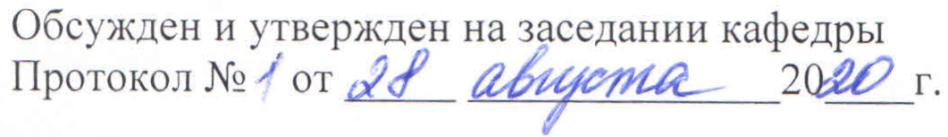 Обсужден и утвержден на заседании кафедры
Протокол № 1 от 28 августа 2020 г.